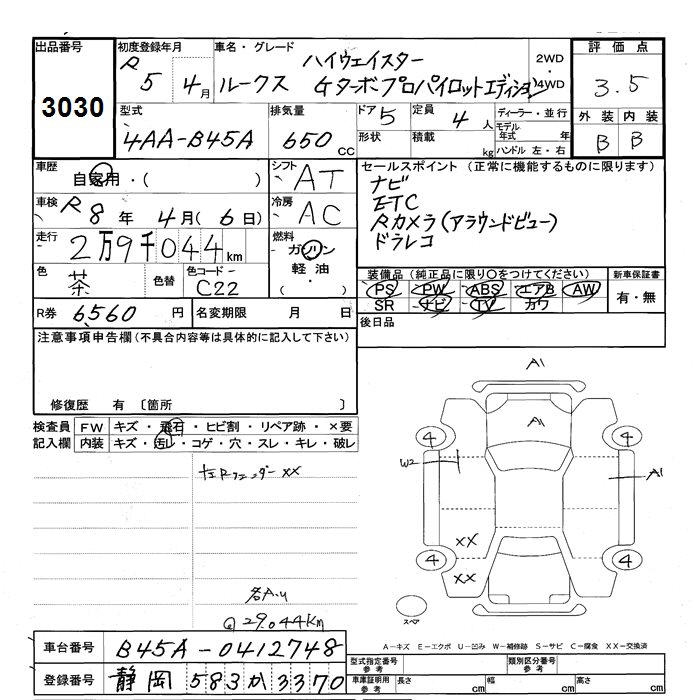 出品番号 初度登録年月 車名・グレード ハイウェイスター 2WD 評価点
3030 R5 4月 ルークス Gターボプロパイロットエディション 4WD 3.5
型式 排気量 ドア 5 定員 4人 ディーラー・並行 外装 内装
4AA-B45A 650cc 形状 積載 kg モデル年式 年 ハンドル 左・右 B B
車歴 自家用・( ) シフト AT セールスポイント (正常に機能するものに限ります)
車検 R8年 4月(6日) 冷房 AC ナビ
ETC
Rカメラ(アラウンドビュー)
ドラレコ
走行 2万9千044km 燃料 ガソリン 軽油 ( ・ )
色 茶 色替 色コード C22
装備品 (純正品に限り○をつけてください) 新車保証書
PS PW ABS エアB AW 有・無
SR ナビ TV カワ
R券 6560円 名変期限 月 日 後日品
注意事項申告欄 (不具合内容等は具体的に記入して下さい)
修復歴 有 〔箇所 〕
検査員 FW キズ・飛石・ヒビ割・リペア跡・×要
記入欄 内装 キズ・汚レ・コゲ・穴・スレ・キレ・破レ
A1
A1
4 4
W2 A1
XX
4 4
XX
スペア
29.044km
A-キズ E-エクボ U-凹み W-補修跡 S-サビ C-腐食 XX-交換済
車台番号 B45A-0412748 型式指定番号 参考 類別区分番号 参考
登録番号 静岡 583か3370 車庫証明用 参考 長さ cm 幅 cm 高さ cm